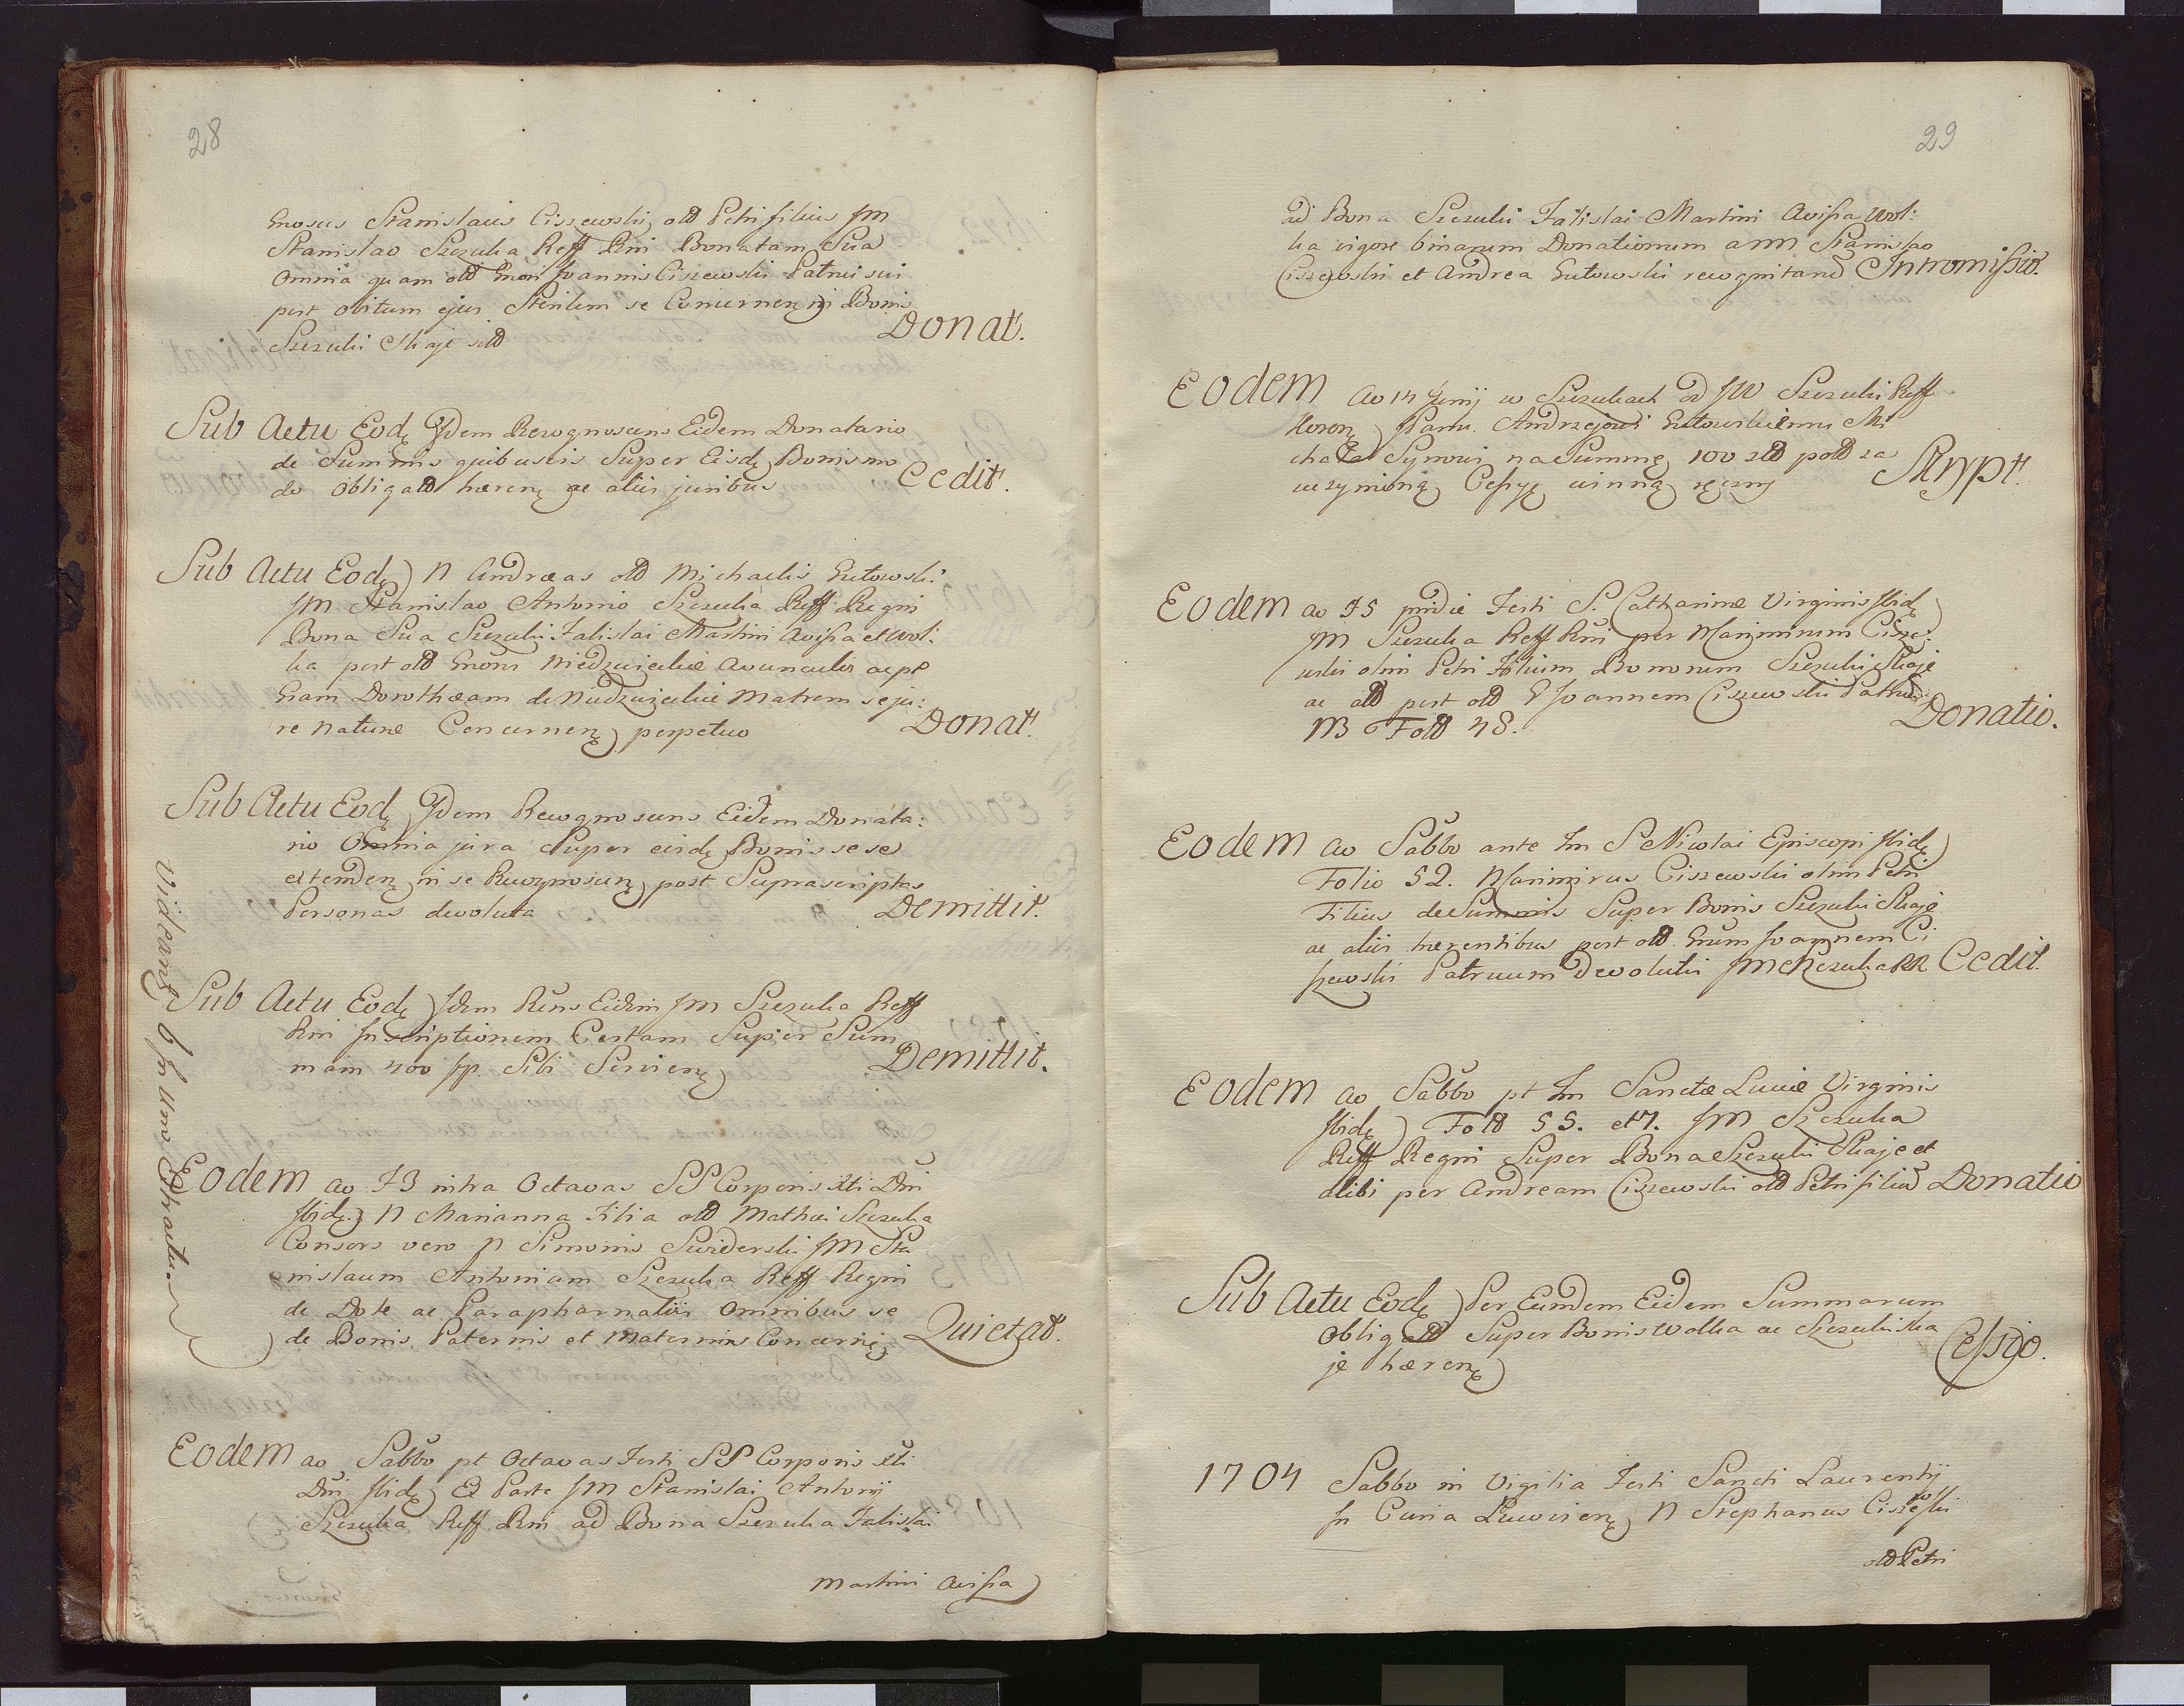 28
Enosus Stanislaus Ciszewski old Petri filius JM
Stanislao Szczuka Reff Rni Bonatam Sua
Omnia quam old Enori Joannis Ciszewski Patrui sui
post obitum ejus Sterilem se Concernen in Bonis
Szczuki Skaje sitd Donat.
Sub Actu Eod Jdem Recognoscens Eidem Donatario
de Summis quibusvis Super Eisd Bonis mo
do Obligatd hæren ac aliis juribus Cedit.
Sub Actu Eod N Andræas old Michaelis Gutowski
JM Stanislao Antonio Szczuka Reff Regni
Bona Sua Szczuki Falislai Martini Avissa et Wol:
ka post old Enorum Niedzwieckie avunculos ac pt
Enam Dorothæam de Niedzwieckie Matrem se ju:
re naturæ Concernen perpetuo Donat.
Sub Actu Eod Jdem Recognoscens Eidem Donata:
rio Omnia jura Super eisd Bonis sese
extenden in se Recognoscen post Suprascriptas
Personas devoluta Demittit.
Sub Actu Eod Jdem Rcns Eidem JM Szczuka Reff
Rni Jnscriptionem Certam Super Sum
mam 400 fp. Sibi Servien Demittit.
Eodem ao F3 intra Octavas SS Corporis Xti Dni
Jbid. N Marianna Filia old Mathæi Szczuka
Consors vero N Simonis Swiderski JM Sta
nislaum Antonium Szczuka Reff Regni
de Dote ac Paraphernaliis Omnibus se
de Bonis Paternis et Maternis Concernen Quietat.
Videant 6 in uno Extractu
Eodem ao Sabbo pt Octavas Festi SS Corporis Xti
Dni Jbid Ex Parte JM Stanislai Antonij
Szczuka Reff Rni ad Bona Szczuka Falislai
Martini Avissa
29
ad Bona Szczuki Falislai Martini Avissa Wol:
ka vigore binarum Donationum a NN Stanislao
Ciszewski et Andrea Gutowski recognitarud Intromissio.
Eodem Ao 14 Junij w Szczukach od JW Szczuki Reff
Koron Panu Andrzejowi Gutowskiemu Mi
chała Synowi na Summę 100 złd pold za
uczynioną Cessyę winną ręczny Skrypt.
Eodem ao F5 pridie Festi S. Catharinæ Virginis Jbid
JM Szczuka Reff Rni per Maximinum Cisze:
wski olim Petri Filium Bonorum Szczuki Skaje
ac old post old E Joannem Ciszewski Patruu
NB Fold 48. Donatio.
Eodem Ao Sabbo ante Fm S Nicolai Episcopi Jbid
Folio 52. Maximirus Ciszewski olim Petri
Filius de Summis Super Bonis Szczuki Skaje
ac aliis hærentibus post old Enum Joannem Ci
szewski Patruum devolutis JM Szczuka RR Cedit.
Eodem ao Sabbo pt Fm Sanctæ Luciæ Virginis
Jbid Fold 55. et 7. JM Szczuka
Reff Regni Super Bona Szczuki Skaje et
alibi per Andream Ciszewski old Petri filiud Donatio
Sub Actu Eod Per Eundem Eidem Summarum
Obligatd Super Bonis Wolka ac Szczuki Ska
je hæren Cessyo.
1704 Sabbo in Vigilia Festi Sancti Laurentij
Jn Curia N Stephanus Ciszewski
old Petri